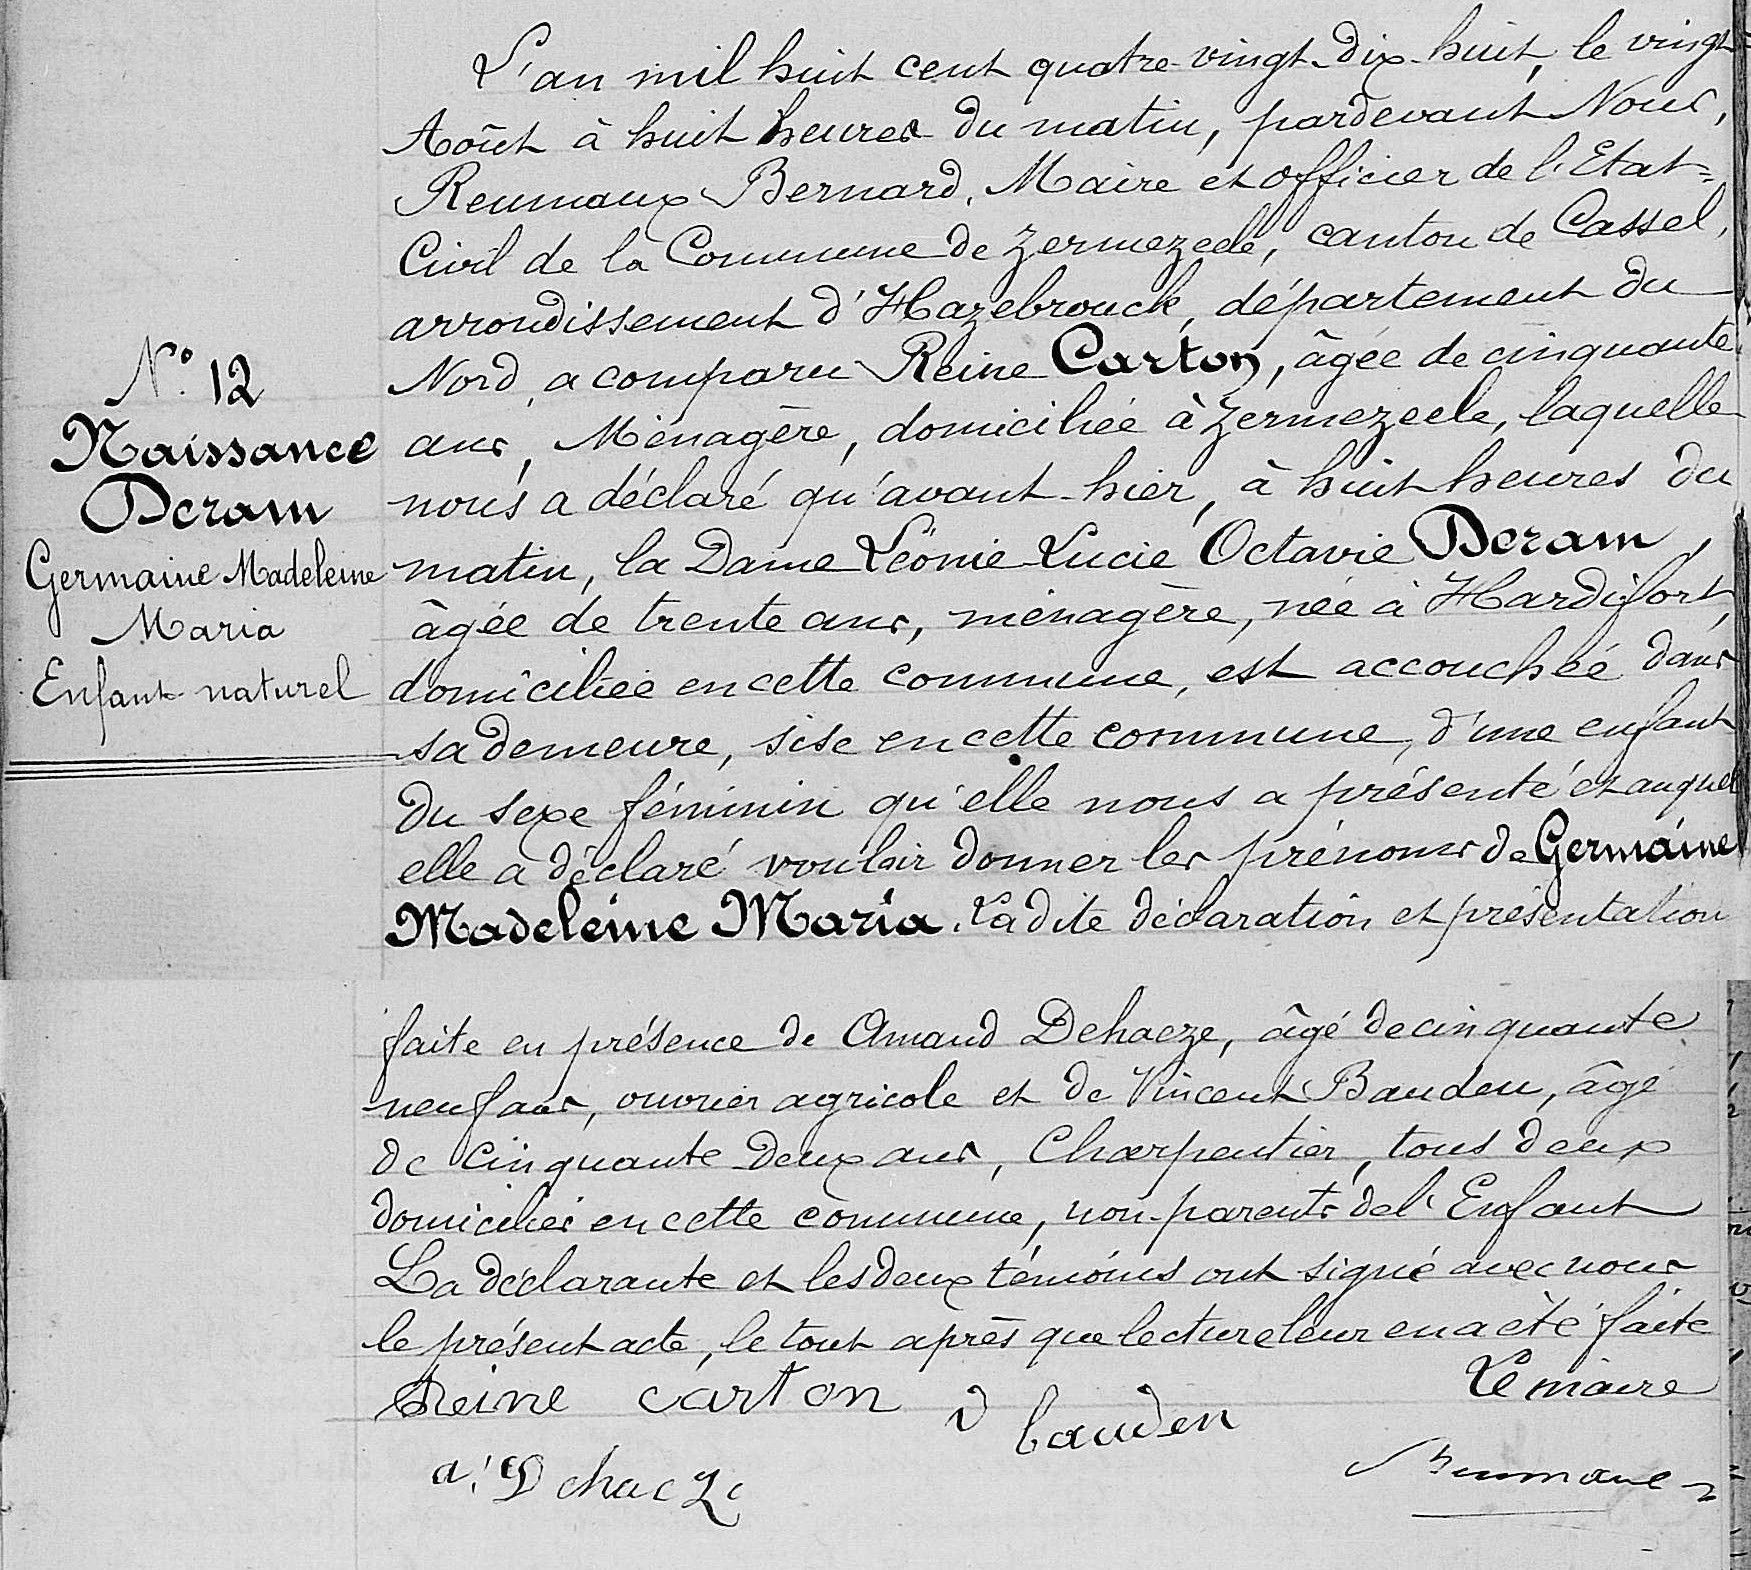 N° 12
Naissance
Deram
Germaine Madeleine
Maria
Enfant naturel
L'an mil huit cent quatre-vingt-dix-huit, le vingt
Août à huit heures du matin, pardevant Nous,
Reumaux Bernard, Maire et officier de l'Etat=
Civil de la Commune de Zermezeele, canton de Cassel,
arrondissement d'Hazebrouck, département du
Nord, a comparu Reine Carton, âgée de cinquante
ans, Ménagère, domiciliée à Zermezeele, laquelle
nous a déclaré qu'avant-hier, à huit heures du
matin, la Dame Léonie Lucie Octavie Deram,
âgée de trente ans, ménagère, née à Hardifort,
domiciliée en cette commune, est accouchée dans
sa demeure, sise en cette commune, d'une enfant
du sexe féminin qu'elle nous a présenté et auquel
elle a déclaré vouloir donner les prénoms de Germaine
Madeleine Maria. Ladite déclaration et présentation
faite en présence de Amand Dehaeze, âgé de cinquante
neuf ans, ouvrier agricole et de Vincent Bauden, âgé
de cinquante deux ans, Charpentier, tous deux
domiciliés en cette commune, non-parents de l'Enfant
La déclarante et les deux témoins ont signé avec nous
le présent acte, le tout après que lecture leur en a été faite
Reine Carton
v bauden
Le maire
a. Dehaeze
Reumaux